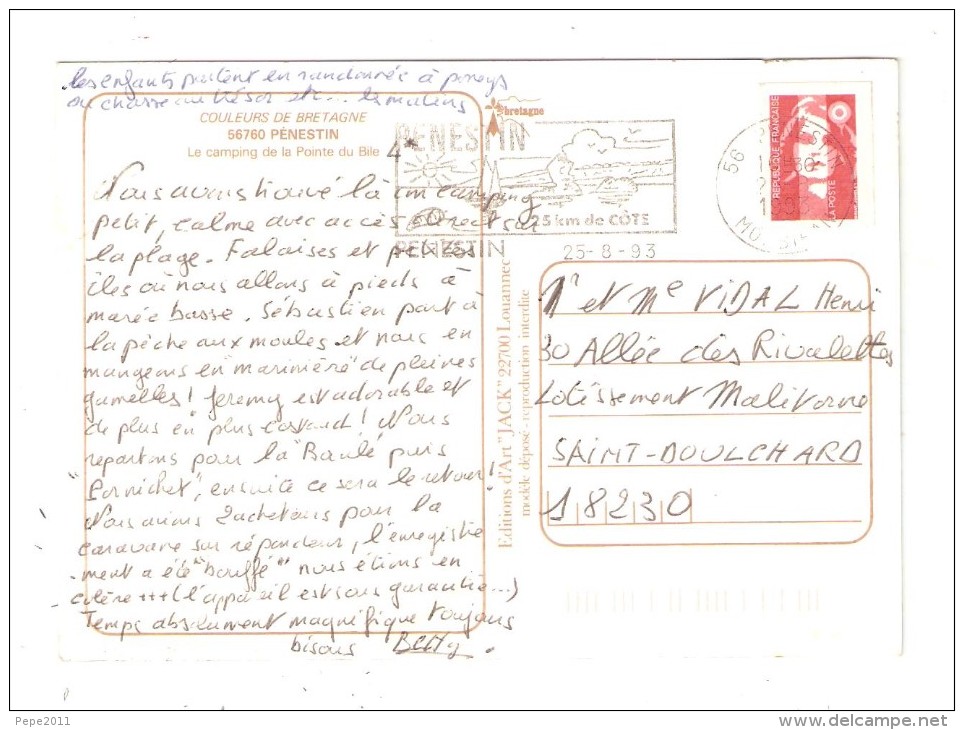 les enfants partent en randonnée à poneys
ou chasse au trésor etc... les matins
COULEURS DE BRETAGNE
56760 PÉNESTIN
Le camping de la Pointe du Bile 4*
bretagne
PENESTIN
25 km de CÔTE
PENESTIN
25-8-93
RÉPUBLIQUE FRANÇAISE
LA POSTE
56 PENESTIN
MORBIHAN
Nous avons trouvé là un camping
petit, calme avec accès direct sur
la plage. Falaises et petites
îles où nous allons à pieds à
marée basse. Sébastien part à
la pêche aux moules et nous en
mangeons en "marinière" de pleines
gamelles! Jeremy est adorable et
de plus en plus costaud! Nous
repartons pour la "Baule puis
Pornichet", ensuite ce sera le retour!
Nous avions 2 acheteurs pour la
caravane sur répondeur, l'enregistre
-ment a été "bouffé" nous étions en
colère +++ (l'appareil est sous garantie...)
Temps absolument magnifique toujours
bisous Betty.
Editions d'Art "JACK" 22700 Louannec
modèle déposé - reproduction interdite
Mr et Me VIDAL Henri
30 Allée des Rivalettes
Lotissement Malitorne
SAINT-DOULCHARD
18230
Pepe2011
delcampe.net